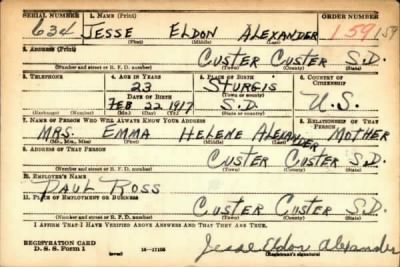 SERIAL NUMBER 1. NAME (Print) ORDER NUMBER
634 JESSE ELDON ALEXANDER 159 159
(First) (Middle) (Last)
2. ADDRESS (Print)
CUSTER CUSTER S.D.
(Number and street or R. F. D. number) (Town) (County) (State)
3. TELEPHONE 4. AGE IN YEARS 5. PLACE OF BIRTH 6. COUNTRY OF CITIZENSHIP
23 STURGIS
DATE OF BIRTH (Town or county)
FEB 22 1917 S.D. U.S.
(Exchange) (Number) (Mo.) (Day) (Yr.) (State or country)
7. NAME OF PERSON WHO WILL ALWAYS KNOW YOUR ADDRESS 8. RELATIONSHIP OF THAT PERSON
MRS. EMMA HELENE ALEXANDER MOTHER
(Mr., Mrs., Miss) (First) (Middle) (Last)
9. ADDRESS OF THAT PERSON
CUSTER CUSTER S.D.
(Number and street or R. F. D. number) (Town) (County) (State)
10. EMPLOYER'S NAME
PAUL ROSS
11. PLACE OF EMPLOYMENT OR BUSINESS
CUSTER CUSTER S.D.
(Number and street or R. F. D. number) (Town) (County) (State)
I AFFIRM THAT I HAVE VERIFIED ABOVE ANSWERS AND THAT THEY ARE TRUE.
REGISTRATION CARD
D. S. S. Form 1 (over) 16-17105 Jesse Eldon Alexander
(Registrant's signature)